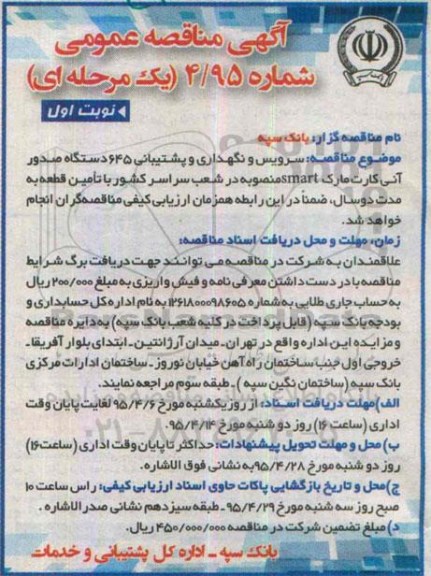 آگهی مناقصه عمومی
شماره ۴/۹۵ (یک مرحله ای)
نوبت اول
نام مناقصه گزار: بانک سپه
موضوع مناقصه: سرویس و نگهداری و پشتیبانی ۶۴۵ دستگاه صدور
آنی کارت مارک smart منصوبه در شعب سراسر کشور با تأمین قطعه به
مدت دو سال، ضمناً در این رابطه همزمان ارزیابی کیفی مناقصه گران انجام
خواهد شد.
زمان، مهلت و محل دریافت اسناد مناقصه:
علاقمندان به شرکت در مناقصه می توانند جهت دریافت برگ شرایط
مناقصه با در دست داشتن معرفی نامه و فیش واریزی به مبلغ ۲۰۰/۰۰۰ ریال
به حساب جاری طلایی به شماره ۲۶۱۸۰۰۰۹۸۶۰۵ به نام اداره کل حسابداری و
بودجه بانک سپه (قابل پرداخت در کلیه شعب بانک سپه) به دایره مناقصه
و مزایده این اداره واقع در تهران ـ میدان آرژانتین ـ ابتدای بلوار آفریقا ـ
خروجی اول جنب ساختمان راه آهن خیابان نوروز ـ ساختمان ادارات مرکزی
بانک سپه (ساختمان نگین سپه) ـ طبقه سوم مراجعه نمایند.
الف) مهلت دریافت اسناد: از روز یکشنبه مورخ ۹۵/۴/۶ لغایت پایان وقت
اداری (ساعت ۱۶) روز دو شنبه مورخ ۹۵/۴/۱۴.
ب) محل و مهلت تحویل پیشنهادات: حداکثر تا پایان وقت اداری (ساعت ۱۶)
روز دو شنبه مورخ ۹۵/۴/۲۸ به نشانی فوق الاشاره.
ج) محل و تاریخ بازگشایی پاکات حاوی اسناد ارزیابی کیفی: راس ساعت ۱۰
صبح روز سه شنبه مورخ ۹۵/۴/۲۹ ـ طبقه سیزدهم نشانی صدر الاشاره .
د) مبلغ تضمین شرکت در مناقصه ۴۵۰/۰۰۰/۰۰۰ ریال.
بانک سپه ـ اداره کل پشتیبانی و خدمات